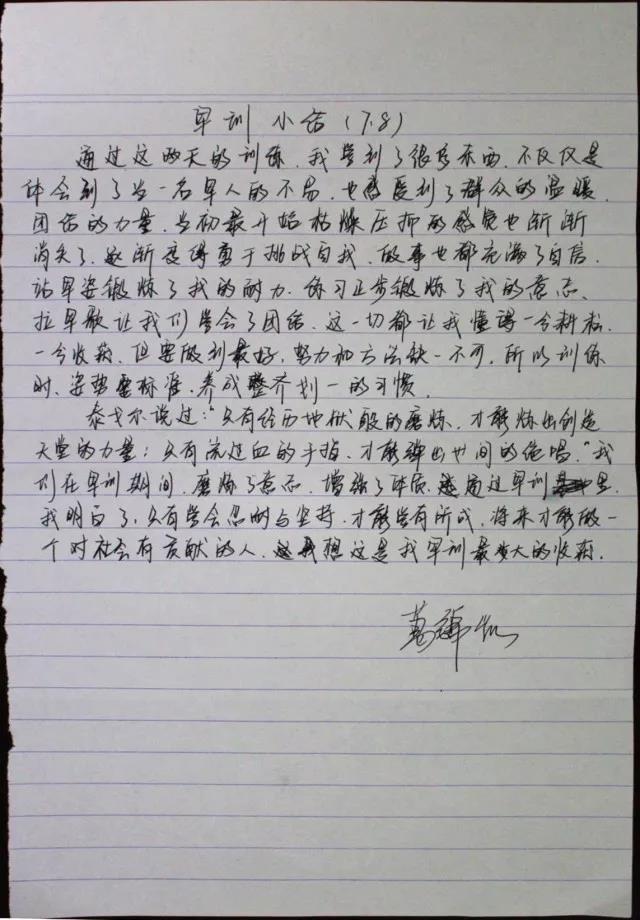 军训小结(7.8)
通过这两天的训练,我学到了很多东西,不仅仅是
体会到了当一名军人的不易,也感受到了群众的温暖,
团结的力量,当初最开始枯燥压抑的感觉也渐渐
消失了,逐渐变得勇于挑战自我,做事也都充满了自信.
站军姿锻炼了我的耐力,练习正步锻炼了我的意志,
拉军歌让我们学会了团结,这一切都让我懂得一分耕耘,
一分收获,但要做到最好,努力和方法缺一不可,所以训练
时,姿势要标准,养成整齐划一的习惯.
泰戈尔说过:"只有经历地狱般的磨炼,才能炼出创造
天堂的力量;只有流过血的手指,才能弹出世间的绝唱."我
们在军训期间,磨炼了意志,增强了体质,通过军训里
我明白了,只有学会忍耐与坚持,才能学有所成,将来才能做一
个对社会有贡献的人,我想这是我军训最大的收获.